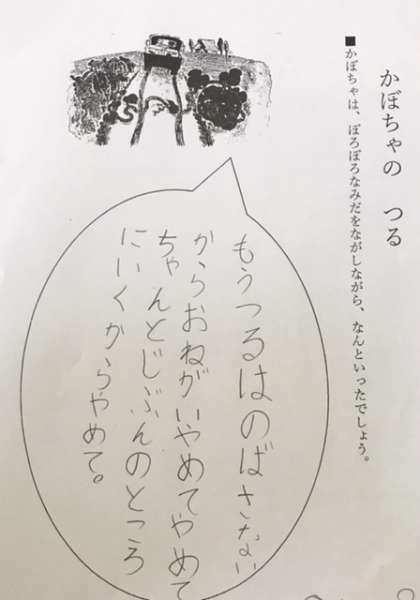 かぼちゃの　つる
■かぼちゃは、ぽろぽろなみだをながしながら、なんといったでしょう。
もうつるはのばさない
からおねがいやめてやめて
ちゃんとじぶんのところ
にいくからやめて。